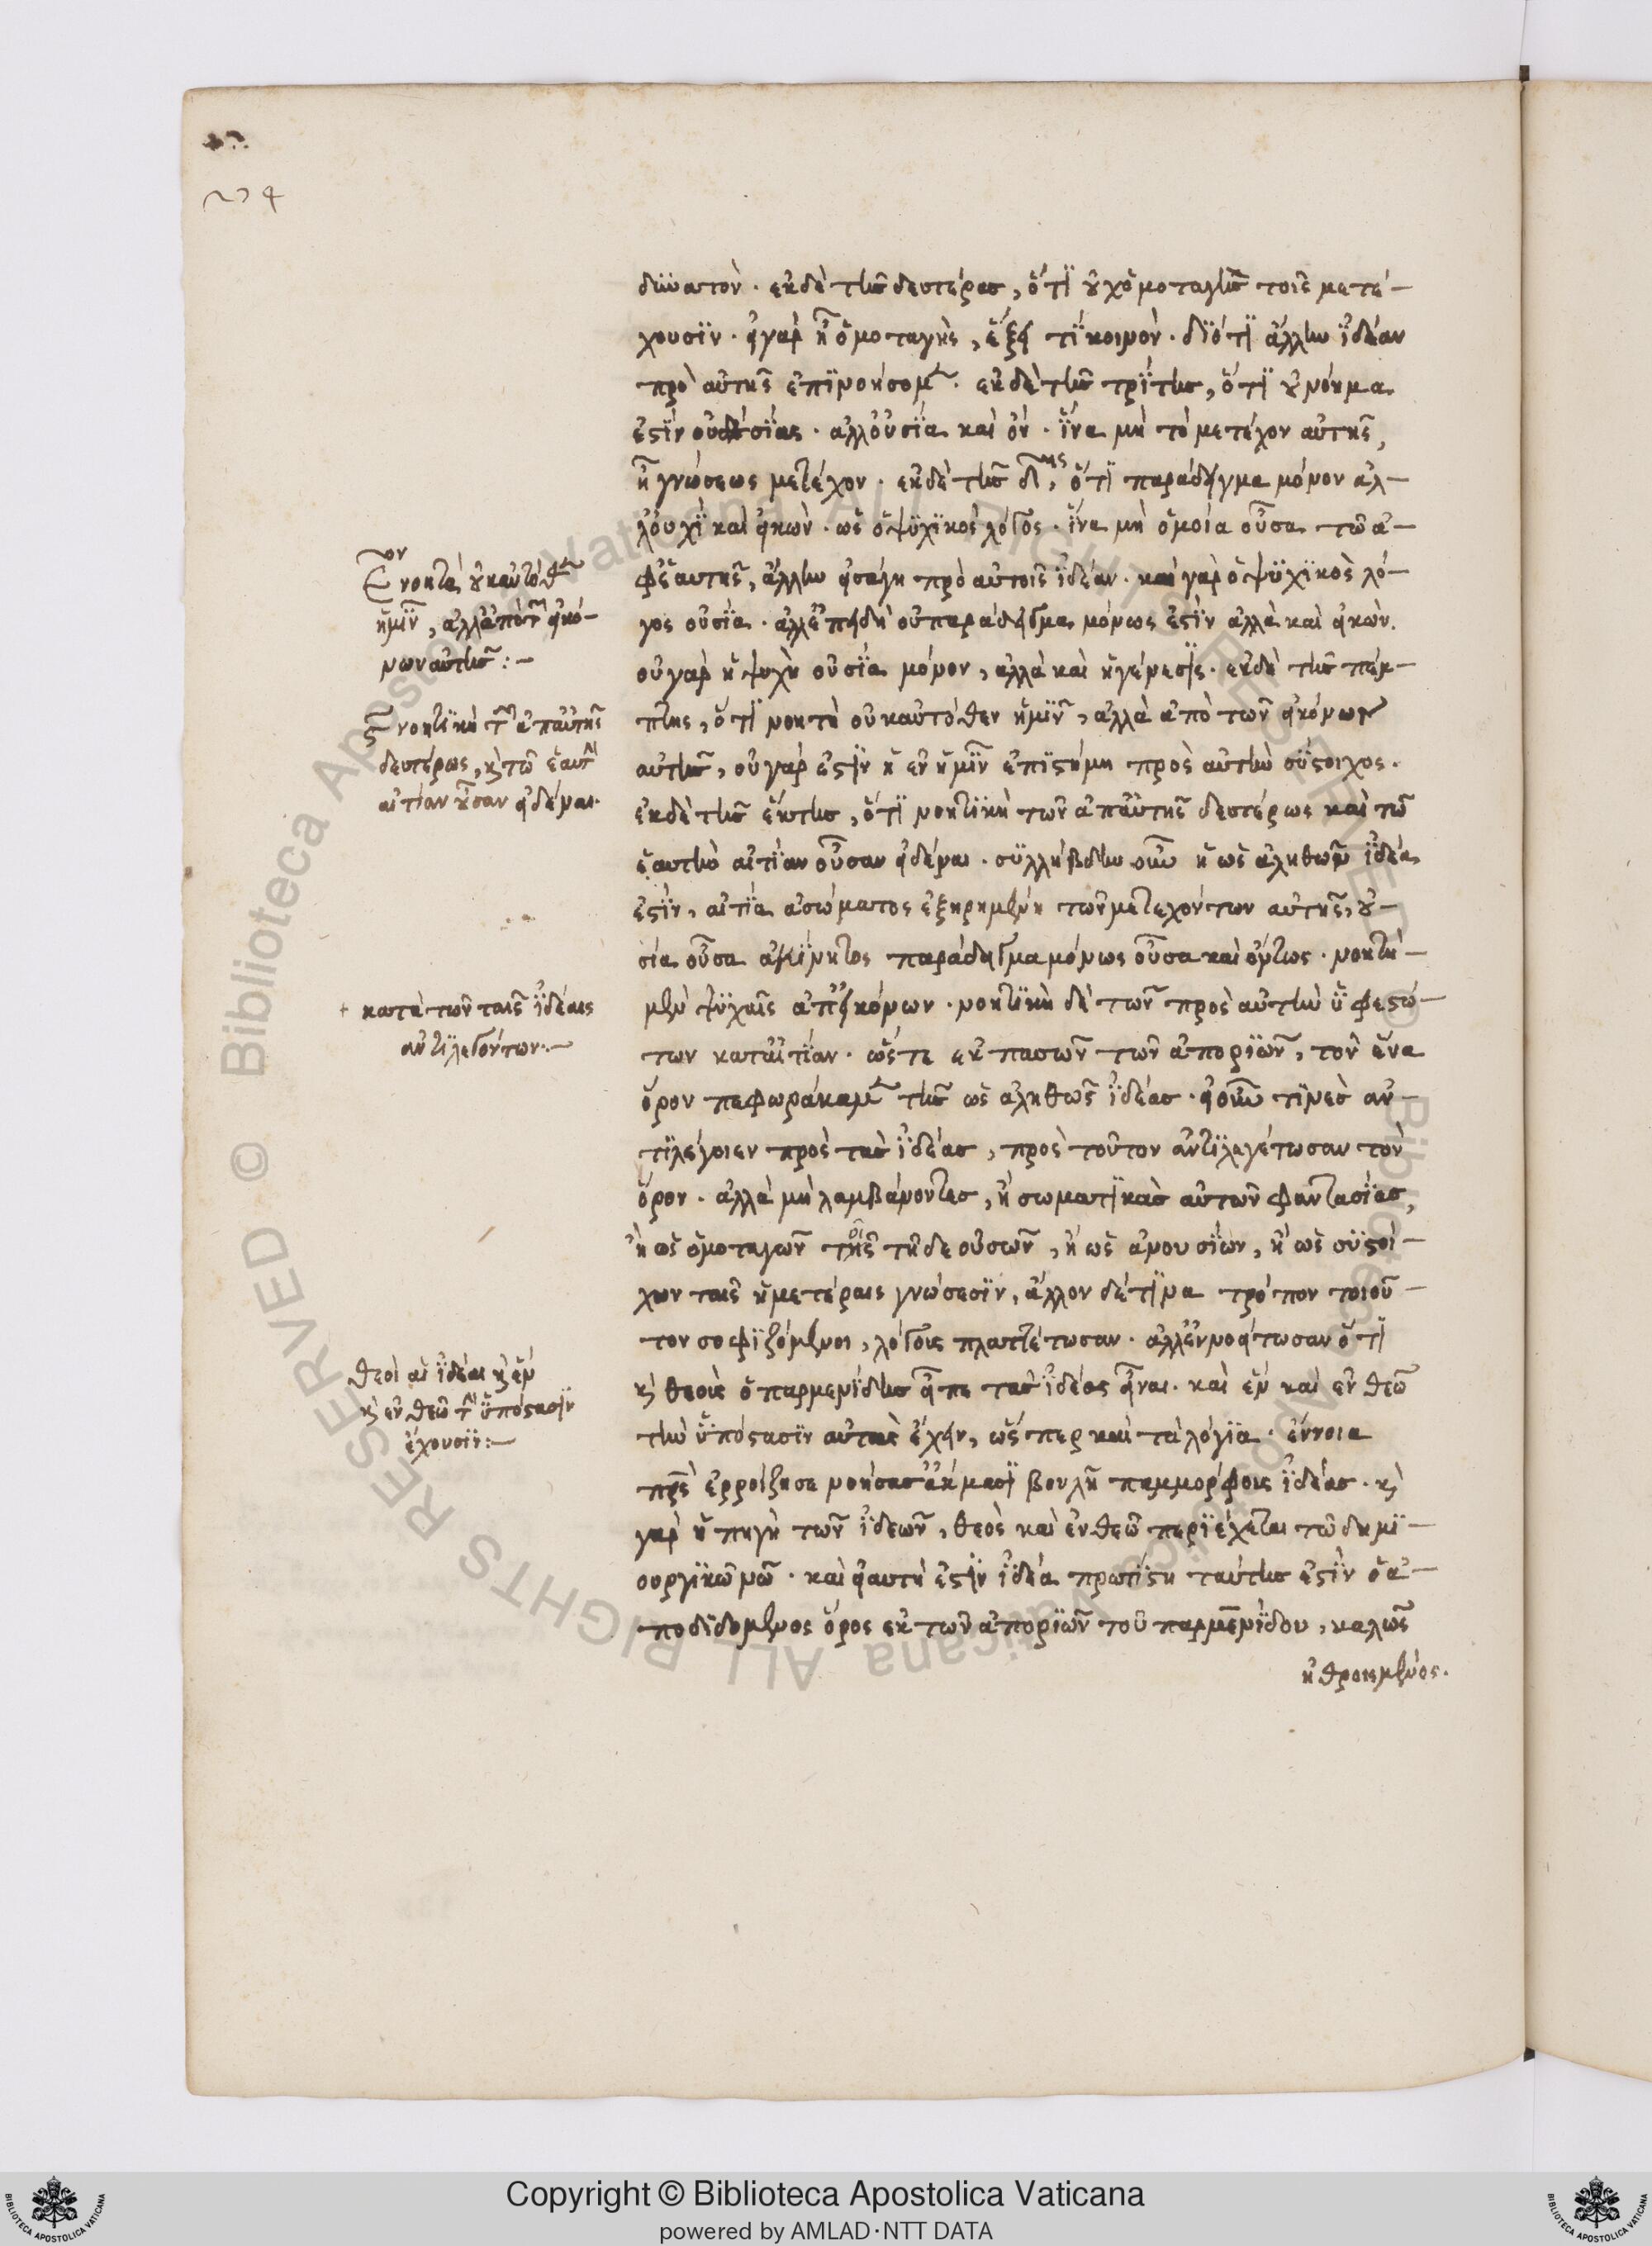 δύνατον. ἐκ δὲ τῆς δευτέρας, ὅτι οὐχ ὁμοταγὴς τοῖς μετέ-
χουσιν. εἰ γὰρ ἦ ὁμοταγὴς, ἕξει τι κοινόν. διότι ἄλλην ἰδέαν
πρὸ αὐτῆς ἐπινοήσομεν. ἐκ δὲ τῆς τρίτης, ὅτι οὐ νόημα
ἐστὶν οὐσίας. ἀλλ' οὐσία καὶ ὄν. ἵνα μὴ τὸ μετέχον αὐτῆς,
ἦ γνώσεως μετέχον. ἐκ δὲ τῆς δ ης, ὅτι παράδειγμα μόνον ἀλ-
λ' οὐχὶ καὶ εἰκών. ὡς ὁ ψυχικὸς λόγος. ἵνα μὴ ὁμοία οὖσα τῷ ἀ-
φ' ἑαυτῆς, ἄλλην εἰσάγῃ πρὸ αὐτοῖς ἰδέαν. καὶ γὰρ ὁ ψυχικὸς λό-
γος οὐσία. ἀλλ' ἐπειδὴ οὐ παράδειγμα μόνως ἐστὶν ἀλλὰ καὶ εἰκών.
οὐ γὰρ ἡ ψυχὴ οὐσία μόνον, ἀλλὰ καὶ ἡ γένεσις. ἐκ δὴ τῆς πέμ-
πτης, ὅτι νοητὴ οὐκ αὐτόθεν ἡμῖν, ἀλλὰ ἀπὸ τῶν εἰκόνων
αὐτῆς, οὐ γάρ ἐστιν ἡ ἐν ἡμῖν ἐπιστήμη πρὸς αὐτὴν σύστοιχος.
ἐκ δὲ τῆς ἕκτης, ὅτι νοητικὴ τῶν ἀπ' αὐτῆς δευτέρως καὶ τῷ
ἑαυτὴν αἰτίαν οὖσαν εἰδέναι. συλλήβδην οὖν ἡ ὡς ἀληθῶς ἰδέα
ἐστὶν, αἰτία ἀσώματος ἐξῃρημένη τῶν μετεχόντων αὐτῆς, οὐ-
σία οὖσα ἀκίνητος παράδειγμα μόνως οὖσα καὶ ὄντως. νοητὴ
μὲν ψυχαῖς ἀπ' εἰκόνων. νοητικὴ δὲ τῶν πρὸς αὐτὴν ὑφεστώ-
των κατ' αἰτίαν. ὥστε ἐκ πασῶν τῶν ἀποριῶν, τὸν ἕνα
ὅρον πεφωράκαμεν τῆς ὡς ἀληθῶς ἰδέας. εἰ οὖν τινὲς ἀν-
τιλέγοιεν πρὸς τὰς ἰδέας, πρὸς τοῦτον ἀντιλεγέτωσαν τὸν
ὅρον. ἀλλὰ μὴ λαμβάνοντες, ἢ σωματικὰς αὐτῶν φαντασίας,
ἢ ὡς ὁμοταγῶν τοῖς τῇδε οὐσῶν, ἢ ὡς ἀνουσίων, ἢ ὡς συστοί-
χων ταῖς ἡμετέραις γνώσεσιν, ἄλλον δέ τινα τρόπον τοιοῦ-
τον σοφιζόμενοι, λόγους πλαττέτωσαν. ἀλλ' ἐννοείτωσαν ὅτι
καὶ θεοὺς ὁ παρμενίδης εἶπε τὰς ἰδέας εἶναι. καὶ ἓν καὶ ἐν θεῷ
τὴν ὑπόστασιν αὐτὰς ἔχειν, ὥσπερ καὶ τὰ λόγια. ἔννοια
πρς ἐρροίζησε νοήσας ἀκμάσι βουλῇ παμμόρφους ἰδέας. καὶ
γὰρ ἡ πηγὴ τῶν ἰδεῶν, θεὸς καὶ ἐν θεῷ περιέχεται τῷ δημι-
ουργικῷ νῷ. καὶ εἰ αὐτή ἐστιν ἰδέα πρωτίστη ταύτης ἐστὶν ὁ ἀ-
ποδιδόμενος ὅρος ἐκ τῶν ἀποριῶν τοῦ παρμενίδου, καλῶς
ἠθροισμένος.
Ε ον νοητὰ οὐκ αὐτόθεν
ἡμῖν, ἀλλ' ἀπὸ τ εἰκό-
νων αὐτῆς:-
ς νοητικὴ τ ἀπ' αὐτῆς
δευτέρως, καὶ τῷ ἑαυτὴν
αἰτίαν οὖσαν εἰδέναι.
κατὰ τῶν ταῖς ἰδέαις
ἀντιλεγόντων.-
θεοὶ αἱ ἰδέαι καὶ ἓν
καὶ ἐν θεῷ τὴν ὑπόστασιν
ἔχουσιν:-
© Biblioteca Apostolica Vaticana ALL RIGHTS RESERVED
© Biblioteca Apostolica Vaticana ALL RIGHTS RESERVED
Copyright © Biblioteca Apostolica Vaticana
powered by AMLAD·NTT DATA
BIBLIOTECA APOSTOLICA VATICANA
BIBLIOTECA APOSTOLICA VATICANA